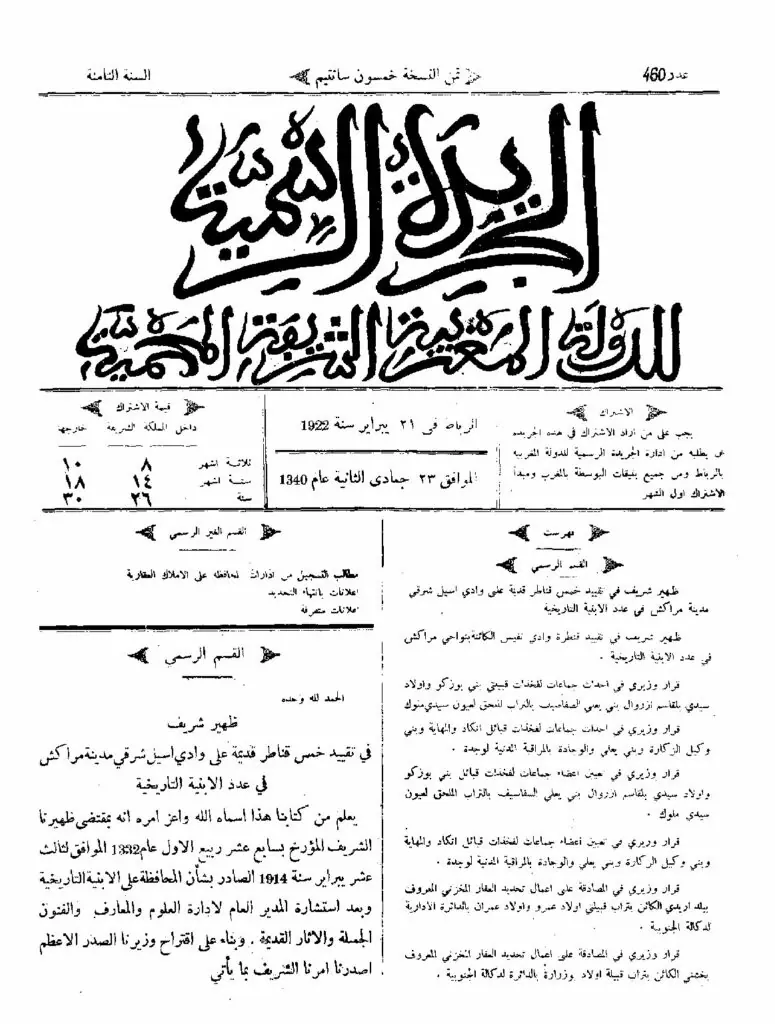 عدد 460
ثمن النسخة خمسون سانتيم
السنة الثامنة
الجريدة الرسمية
للدولة المغربية الشريفة المحمية
الاشتراك
يجب على من اراد الاشتراك فى هذه الجريدة
ان يطلبه من ادارة الجريدة الرسمية للدولة المغربية
بالرباط ومن جميع بنيقات البوسطة بالمغرب ومبدأ
الاشتراك اول الشهر
الرباط فى ٢١ يبراير سنة 1922
الموافق ٢٣ جمادى الثانية عام 1340
قيمة الاشتراك
داخل المملكة الشريفة خارجها
ثلاثة اشهر ٨ ١٠
ستة اشهر ١٤ ١٨
سنة ٢٦ ٣٠
فهرست
القسم الرسمي
ظهير شريف في تقييد خمس قناطر قديمة على وادي اسيل شرقي
مدينة مراكش في عدد الابنية التاريخية
ظهير شريف في تقييد قنطرة وادي نفيس الكائنة بنواحي مراكش
في عدد الابنية التاريخية .
قرار وزيري في احداث جماعات لفخدات قبيلتي بني بوزكو واولاد
سيدي بلقاسم ازروال بني يعلي الصفاسيف بالتراب الملحق لعيون سيدي ملوك
قرار وزيري في احداث جماعات لفخدات قبائل انكاد والمهاية وبني
وكيل الزكارة وبني يعلي والوجادة بالمراقبة المدنية لوجدة .
قرار وزيري في تعيين اعضاء جماعات لفخدات قبائل بني بوزكو
واولاد سيدي بلقاسم ازروال بني يعلي السفاسيف بالتراب الملحق لعيون
سيدي ملوك .
قرار وزيري في تعيين أعضاء جماعات لفخدات قبائل انكاد والمهاية
وبني وكيل الزكارة وبني يعلي والوجادة بالمراقبة المدنية لوجدة .
قرار وزيري في المصادقة على اعمال تحديد العقار المخزني المعروف
ببلد اريدي الكائن بتراب قبيلتي اولاد عمرو واولاد عمران بالدائرة الادارية
لدكالة الجنوبية .
قرار وزيري في المصادقة على اعمال تحديد العقار المخزني المعروف
الكائن بتراب قبيلة اولاد بوزرارة بالدائرة لدكالة الجنوبية .
القسم الغير الرسمي
مطالب التسجيل من ادارات المحافظة على الاملاك العقارية
اعلانات بانتهاء التحديد
اعلانات متفرقة
القسم الرسمي
الحمد لله وحده
ظهير شريف
في تقييد خمس قناطر قديمة على وادي اسيل شرقي مدينة مراكش
في عدد الابنية التاريخية
يعلم من كتابنا هذا اسماه الله واعز امره انه بمقتضى ظهيرنا
الشريف المؤرخ بسابع عشر ربيع الاول عام 1332 الموافق لثالث
عشر يبراير سنة 1914 الصادر بشأن المحافظة على الابنية التأريخية
وبعد استشارة المدير العام لادارة العلوم والمعارف والفنون
الجميلة والاثار القديمة . وبناء على اقتراح وزيرنا الصدر الاعظم
اصدرنا امرنا الشريف بما يأتي